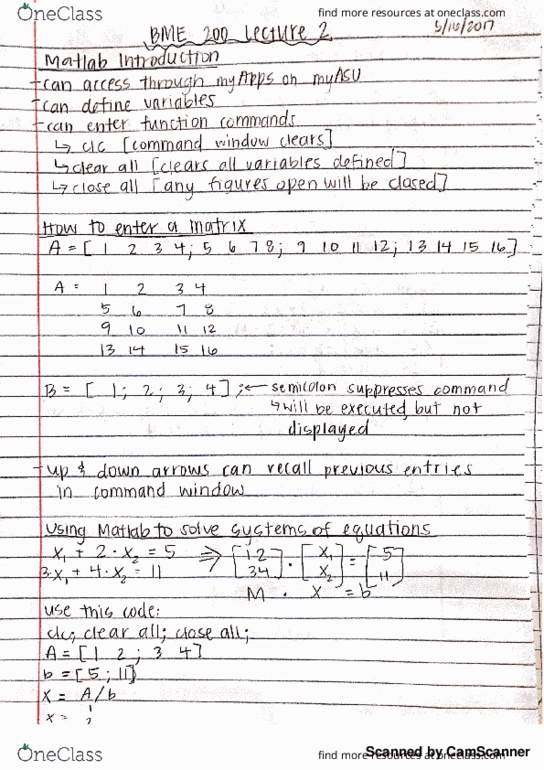 OneClass
find more resources at oneclass.com
BME 200 Lecture 2
5/16/2017
Matlab Introduction
-can access through myApps on myASU
-can define variables
-can enter function commands
↳ clc [command window clears]
↳ clear all [clears all variables defined]
↳ close all [any figures open will be closed]
How to enter a matrix
A = [ 1 2 3 4; 5 6 7 8; 9 10 11 12; 13 14 15 16]
A = 1 2 3 4
5 6 7 8
9 10 11 12
13 14 15 16
B = [ 1; 2; 3; 4] ; ← semicolon suppresses command
↳ will be executed but not
displayed
-up & down arrows can recall previous entries
in command window
Using Matlab to solve systems of equations
x₁ + 2·x₂ = 5 ⇒ [1 2] · [x₁] = [5]
3·x₁ + 4·x₂ = 11 [3 4] [x₂] [11]
M · x = b
use this code:
clc; clear all; close all;
A = [1 2 ; 3 4]
b = [5 ; 11]
x = A/b
x = 1
2
OneClass
find more resources at oneclass.com
Scanned by CamScanner